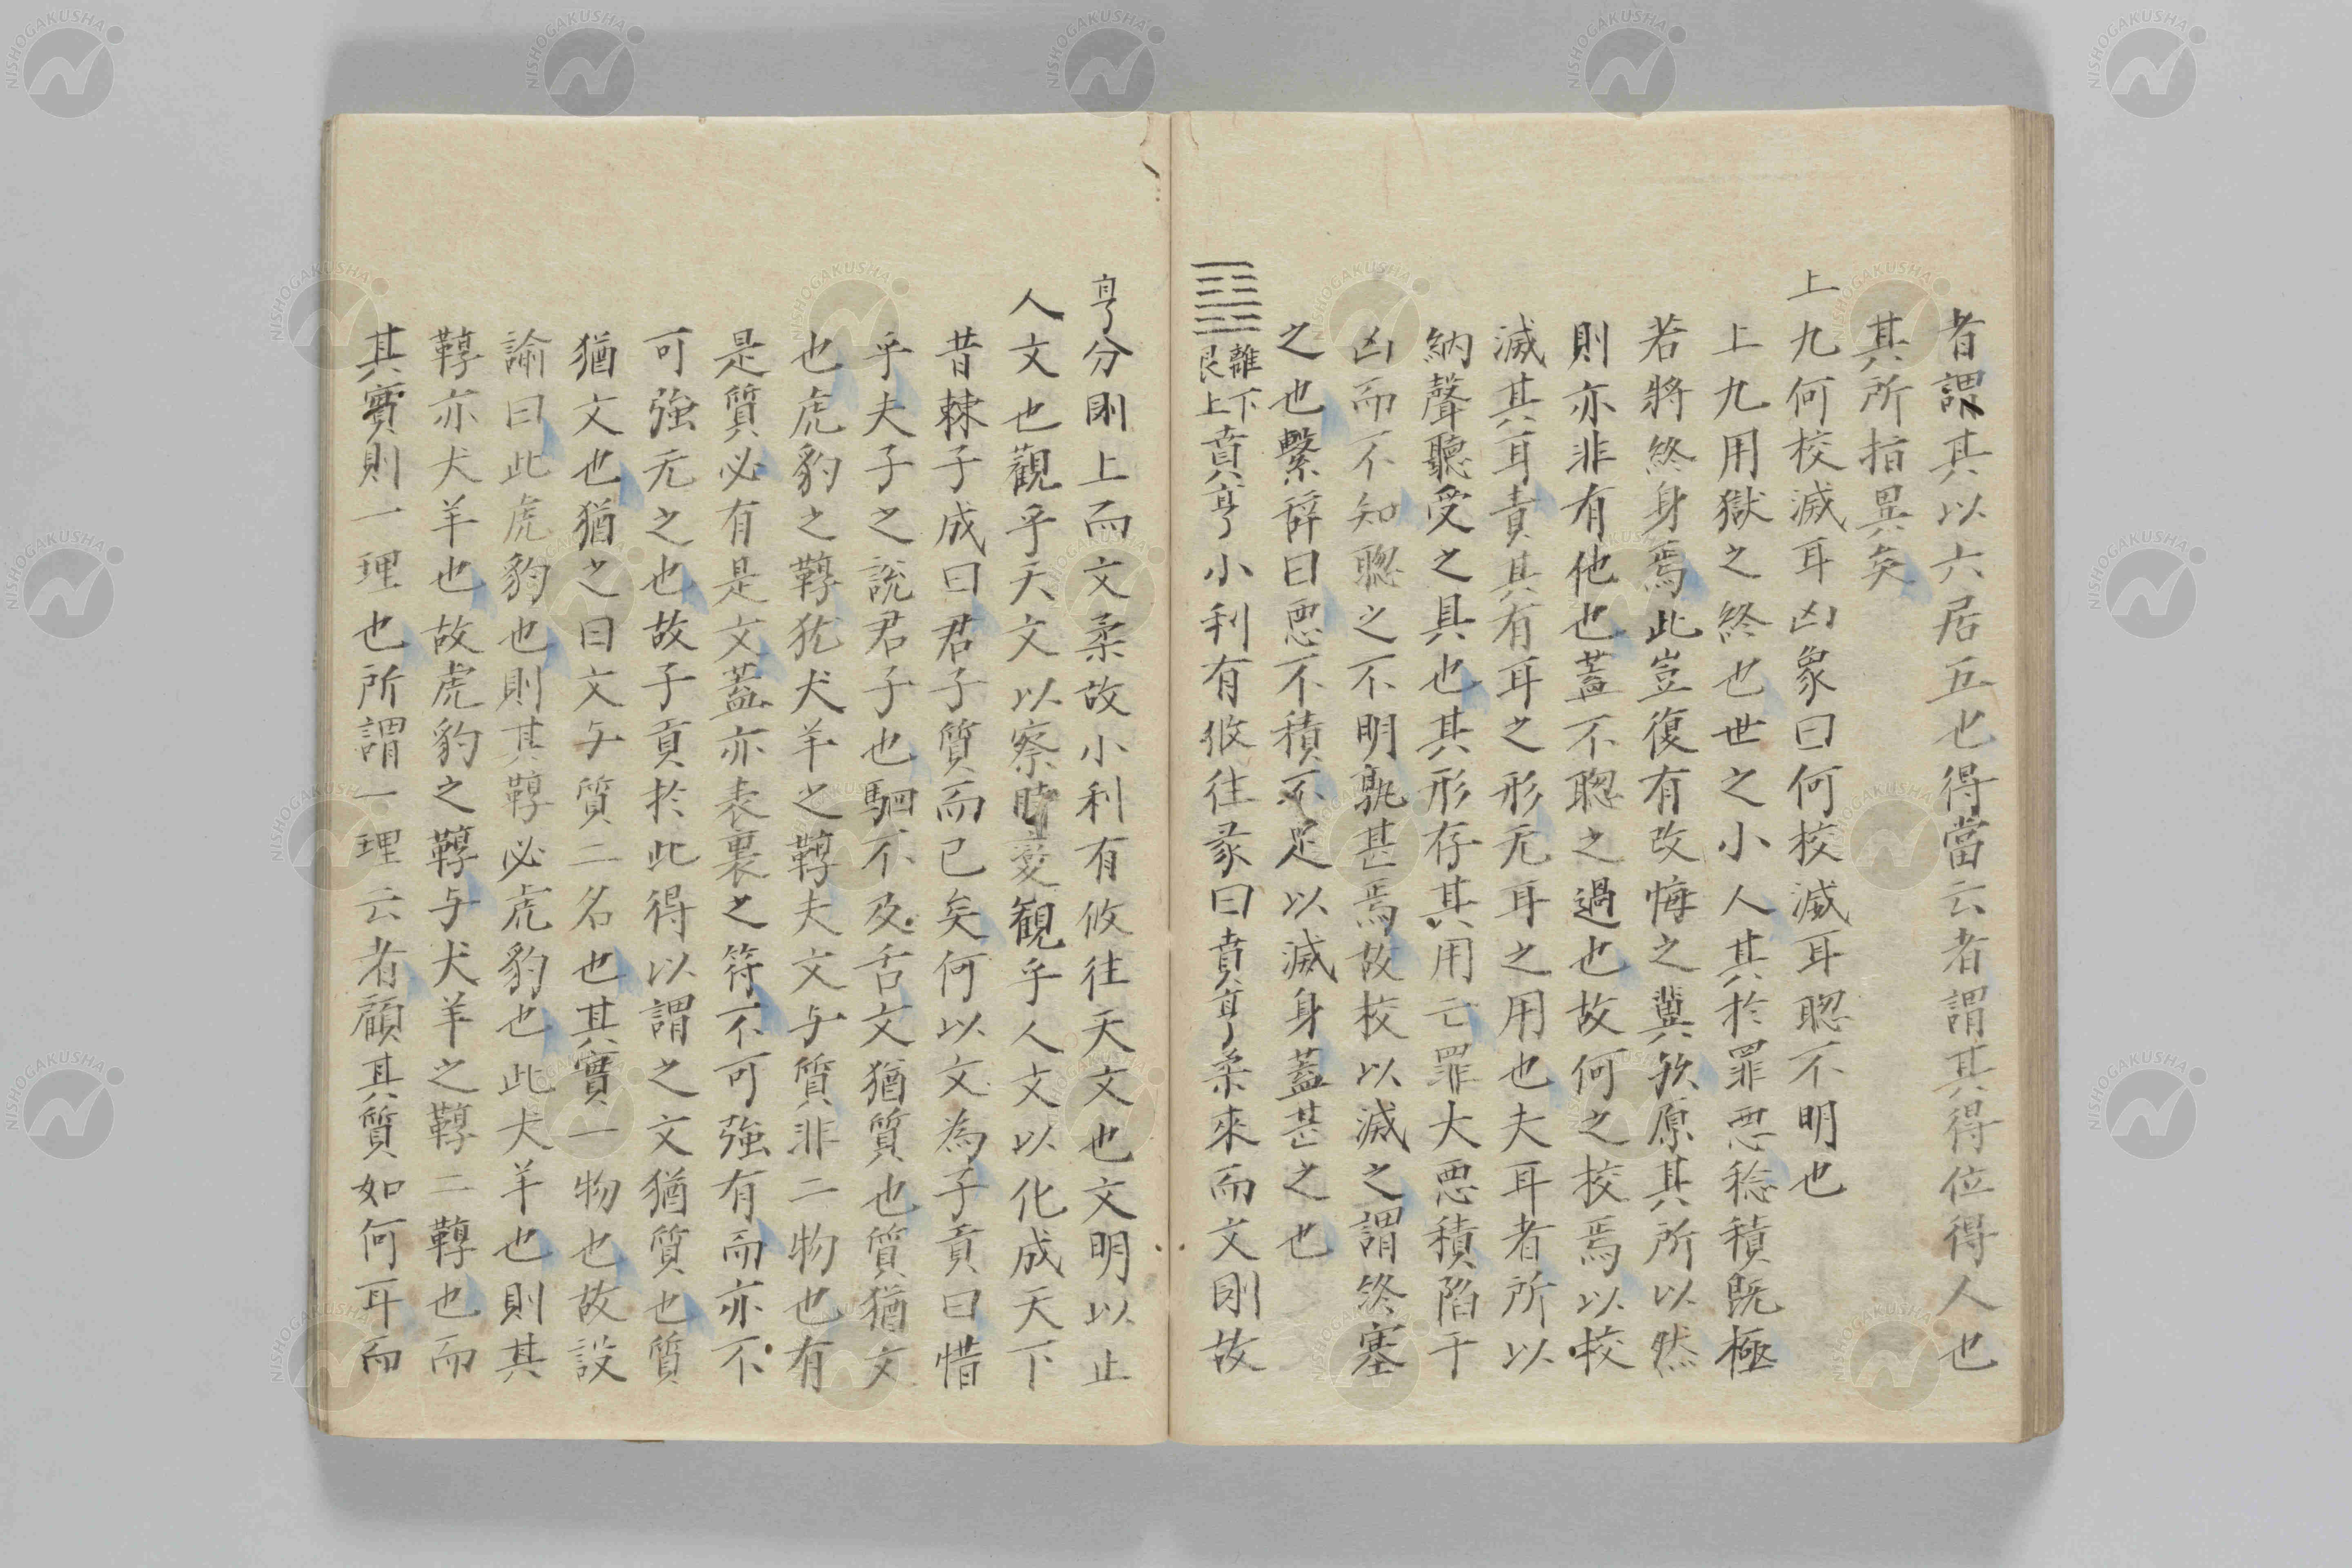 者謂其以六居五也得當云者謂其得位得人也
其所指異矣
上九何校滅耳凶象曰何校滅耳聦不明也
上九用獄之終也世之小人其於罪悪稔積既極
若將終身焉此豈復有改悔之冀欤原其所以然
則亦非有他也蓋不聦之過也故何之校焉以校
滅其耳責其有耳之形无耳之用也夫耳者所以
納聲聽受之具也其形存其用亡罪大悪積陷于
凶而不知聦之不明孰甚焉故校以滅之謂終塞
之也繫辞曰悪不積不足以滅身蓋甚之也
䷕離下艮上賁亨小利有攸往彖曰賁亨柔來而文剛故
亨分剛上而文柔故小利有攸往天文也文明以止
人文也觀乎天文以察時变観乎人文以化成天下
昔棘子成曰君子質而已矣何以文為子貢曰惜
乎夫子之說君子也駟不及舌文猶質也質猶文
也虎豹之鞟犹犬羊之鞟夫文与質非二物也有
是質必有是文蓋亦表裏之符不可強有而亦不
可強无之也故子貢於此得以謂之文猶質也質
猶文也猶之曰文与質二名也其實一物也故設
諭曰此虎豹也則其鞟必虎豹也此犬羊也則其
鞟亦犬羊也故虎豹之鞟与犬羊之鞟二鞟也而
其實則一理也所謂一理云者顧其質如何耳而
NISHOGAKUSHA